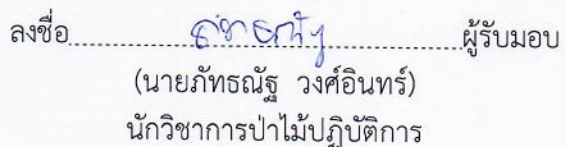 ลงชื่อ........................................................ผู้รับมอบ
(นายภัทธณัฐ วงศ์อินทร์)
นักวิชาการป่าไม้ปฏิบัติการ